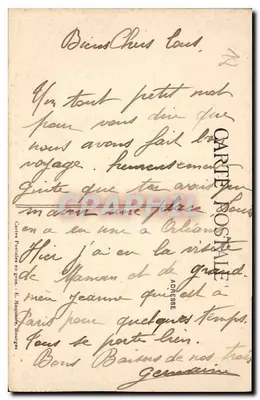 Biens Chers Tous.
Un tout petit mot
pour vous dire que
nous avons fait bon
voyage. heureusement
Ginte que tu avais pu
m'avoir une place. Louis
en a eu une à Orléans
Hier j'ai eu la visite
de Maman et de grand
mère Jeanne qui est à
Paris pour quelques temps.
Tous se porte bien.
Bons Baisers de nos trois
Germaine
CARTE POSTALE
ADRESSE
Cartes Postales en gros. - E. Maquaire, Bourges
CPA